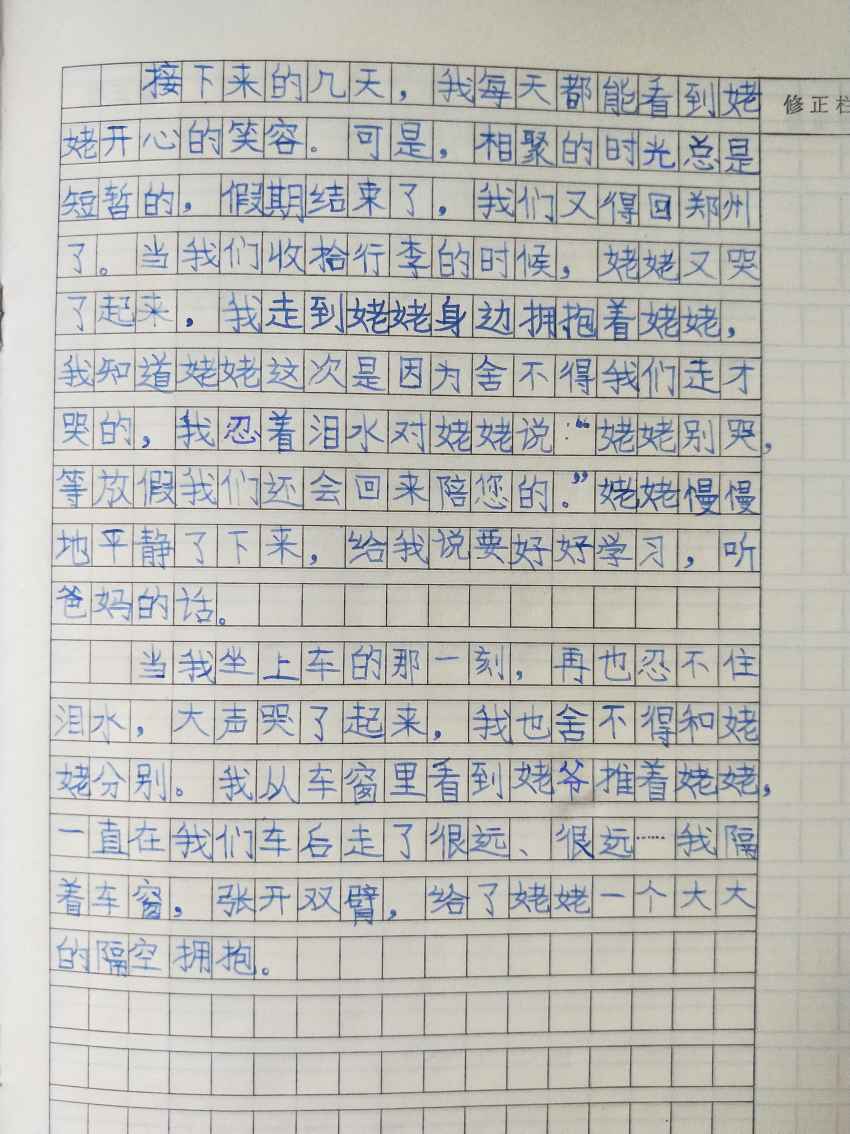 接下来的几天，我每天都能看到姥
修正栏
姥开心的笑容。可是，相聚的时光总是
短暂的，假期结束了，我们又得回郑州
了。当我们收拾行李的时候，姥姥又哭
了起来，我走到姥姥身边拥抱着姥姥，
我知道姥姥这次是因为舍不得我们走才
哭的，我忍着泪水对姥姥说：“姥姥别哭，
等放假我们还会回来陪您的。”姥姥慢慢
地平静了下来，给我说要好好学习，听
爸妈的话。
当我坐上车的那一刻，再也忍不住
泪水，大声哭了起来，我也舍不得和姥
姥分别。我从车窗里看到姥爷推着姥姥，
一直在我们车后走了很远、很远……我隔
着车窗，张开双臂，给了姥姥一个大大
的隔空拥抱。